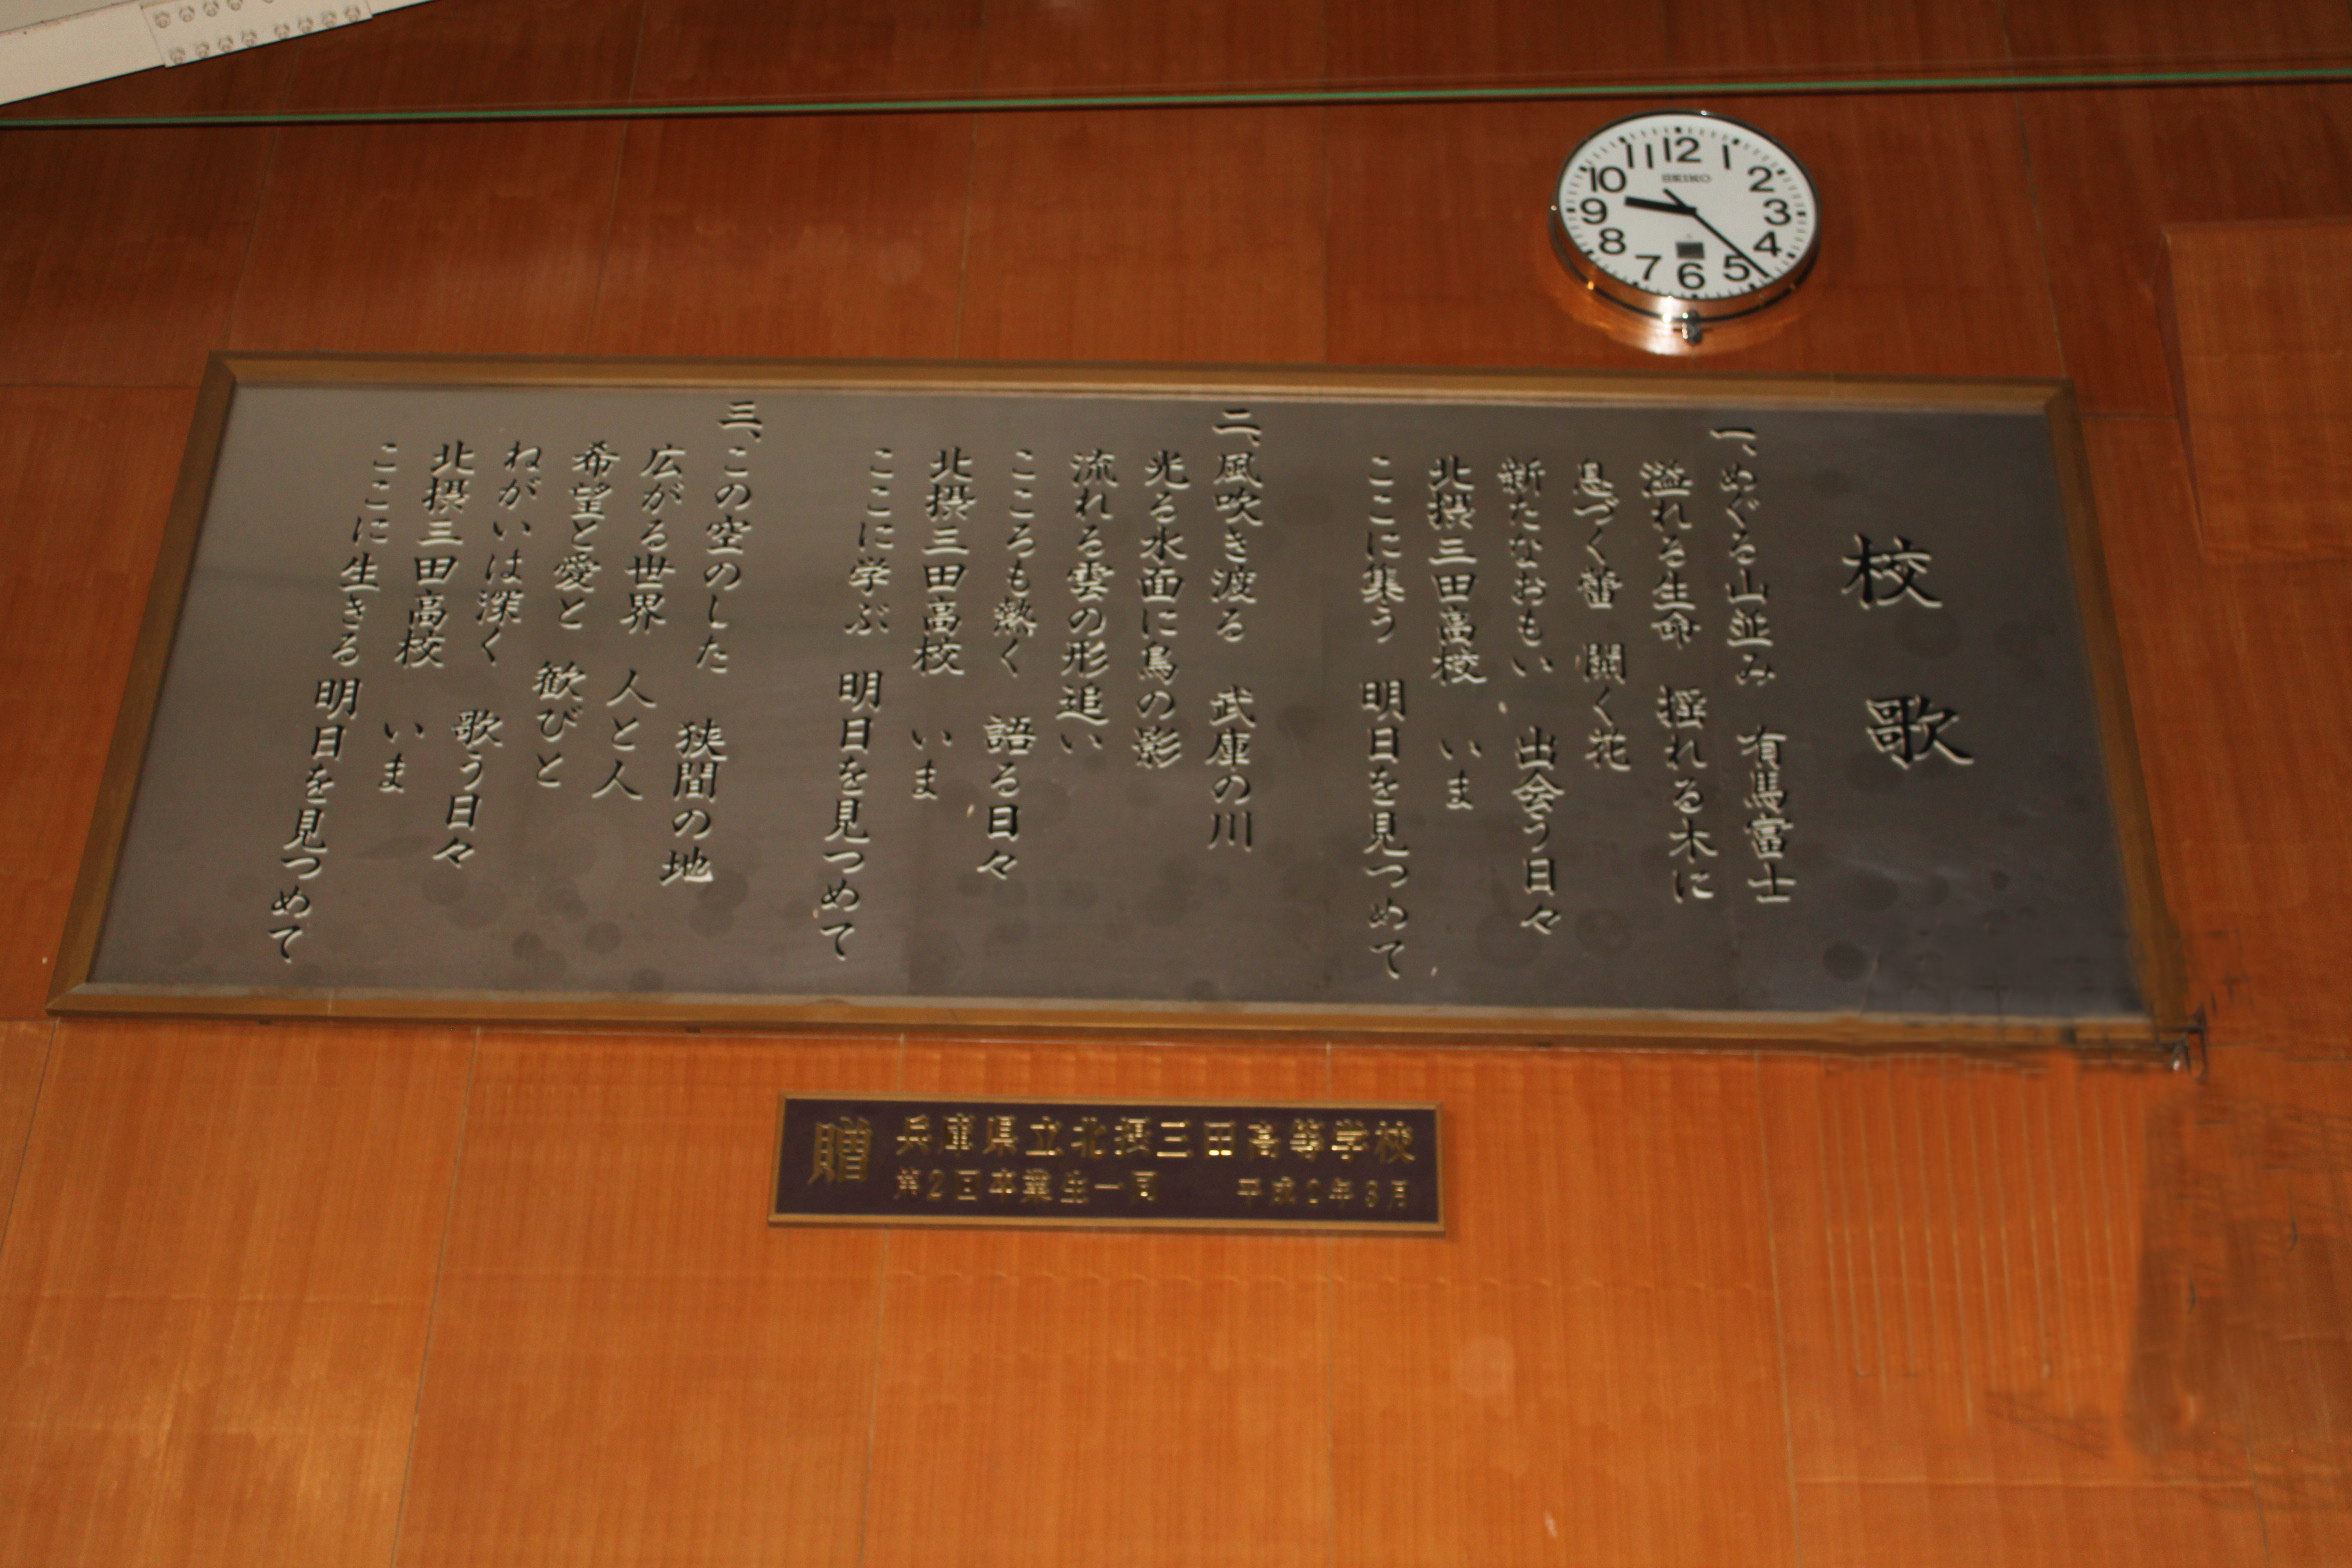 校歌
一、めぐる山並み　有馬富士
溢れる生命　揺れる木に
息づく蕾　開く花
新たなおもい　出会う日々
北摂三田高校　いま
ここに集う　明日を見つめて
二、風吹き渡る　武庫の川
光る水面に鳥の影
流れる雲の形追い
こころも熱く　語る日々
北摂三田高校　いま
ここに学ぶ　明日を見つめて
三、この空のした　狭間の地
広がる世界　人と人
希望と愛と　歓びと
ねがいは深く　歌う日々
北摂三田高校　いま
ここに生きる　明日を見つめて
12 1 2 3 4 5 6 7 8 9 10 11
SEIKO
贈 兵庫県立北摂三田高等学校
第2回卒業生一同　平成2年3月